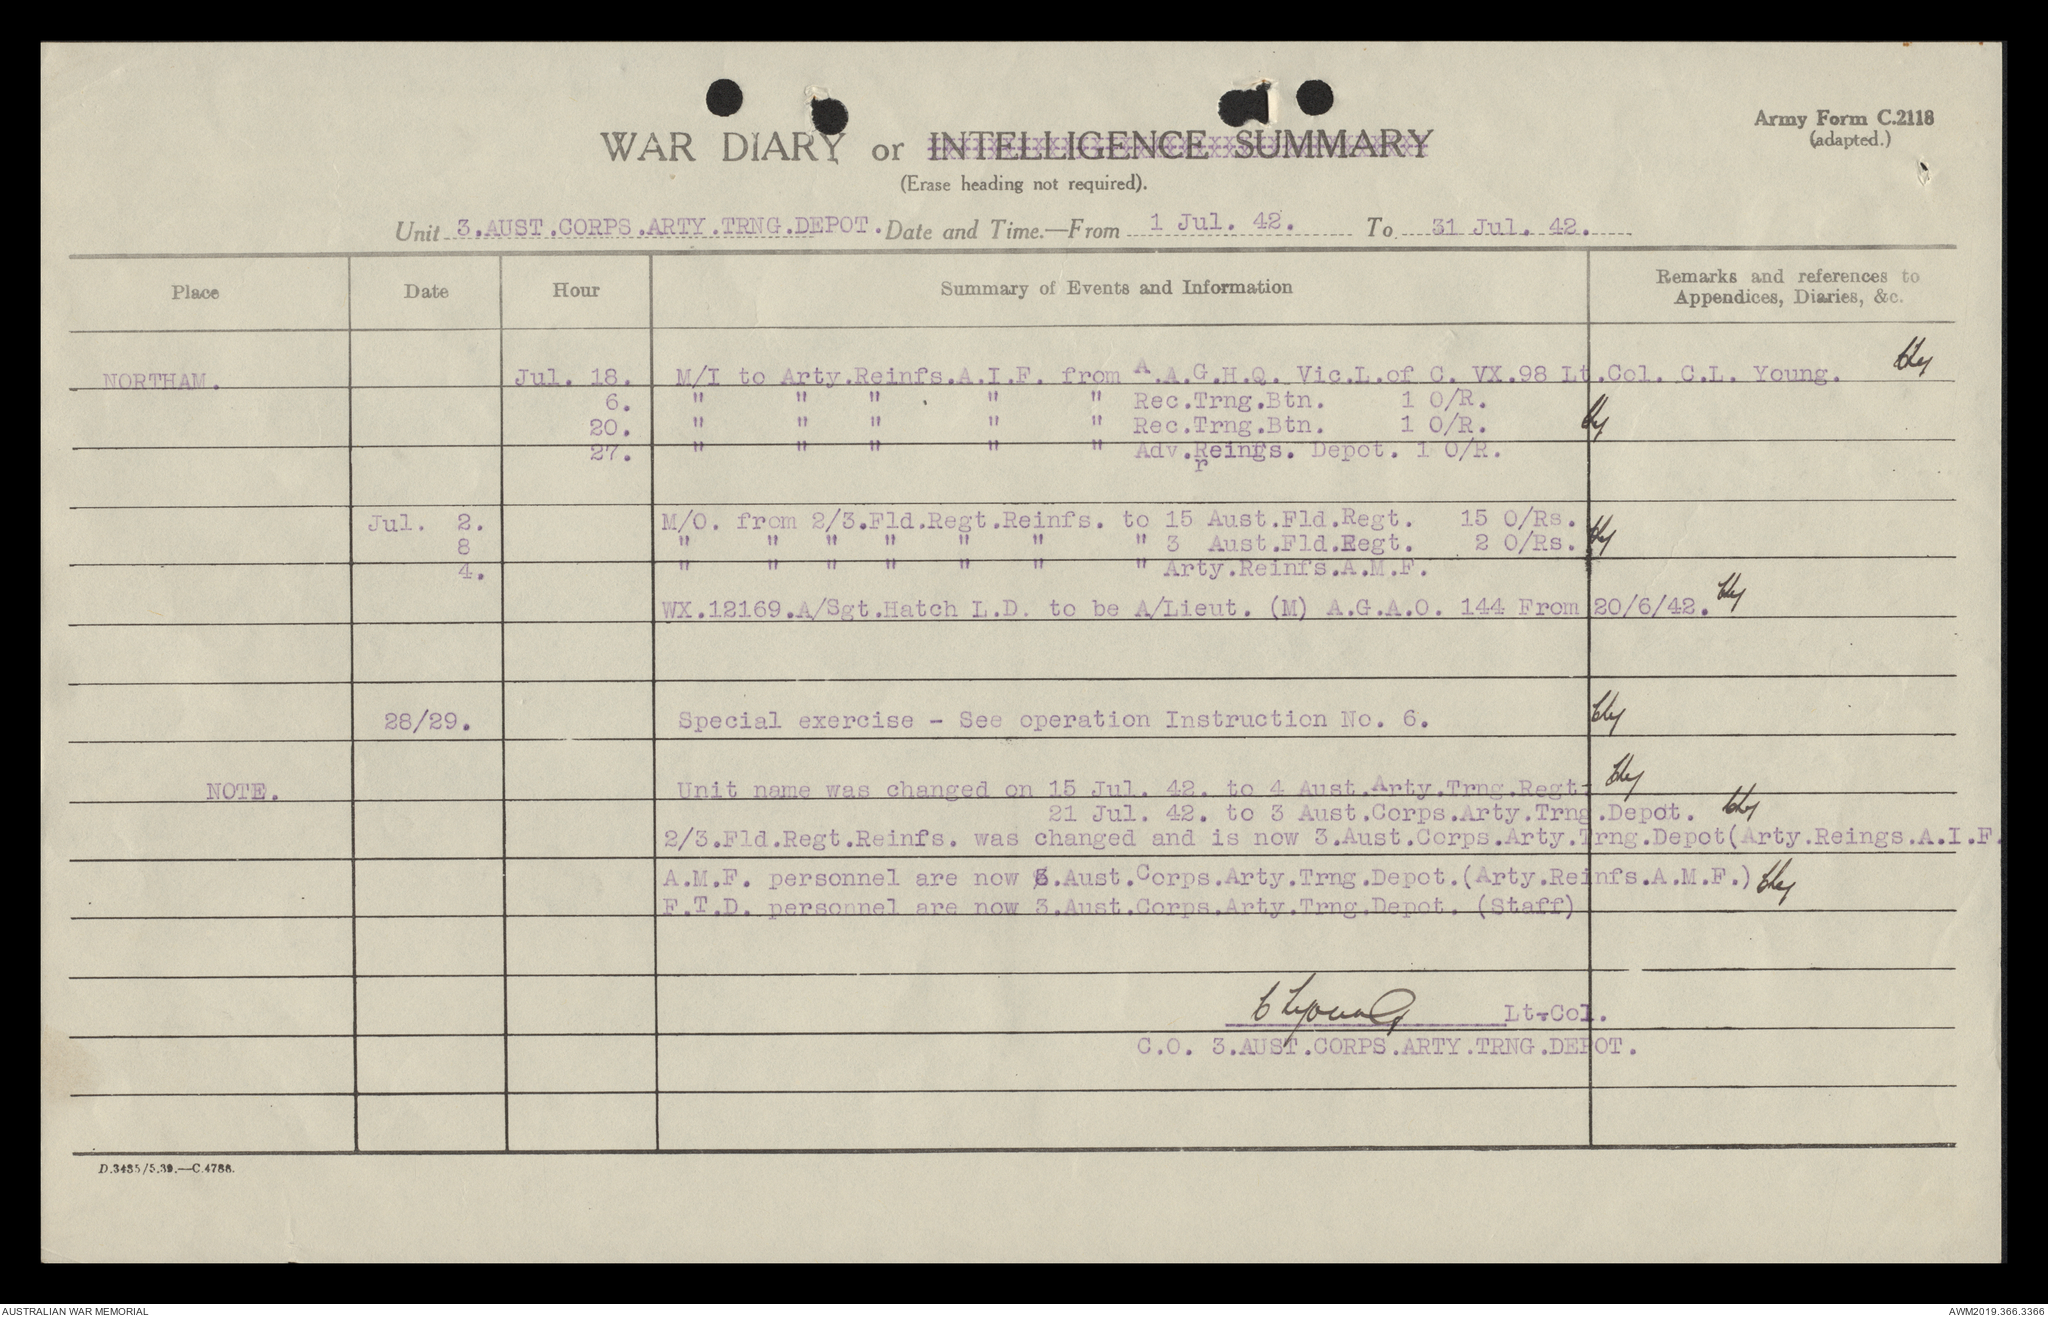 Army Form C.2118
(adapted.)
WAR DIARY or INTELLIGENCE SUMMARY
(Erase heading not required).
Unit 3.AUST.CORPS.ARTY.TRNG.DEPOT. Date and Time.—From 1 Jul. 42. To 31 Jul. 42.
Place Date Hour Summary of Events and Information Remarks and references to Appendices, Diaries, &c.
NORTHAM. Jul. 18. M/I to Arty.Reinfs.A.I.F. from A.A.G.H.Q. Vic.L.of C. VX.98 Lt.Col. C.L. Young. CLY
6. " " " " " Rec.Trng.Btn. 1 O/R.
20. " " " " " Rec.Trng.Btn. 1 O/R. CLY
27. " " " " " Adv.Reinfs. Depot. 1 O/R.
r
Jul. 2. M/O. from 2/3.Fld.Regt.Reinfs. to 15 Aust.Fld.Regt. 15 O/Rs.
8 " " " " " " " 3 Aust.Fld.Regt. 2 O/Rs. CLY
4. " " " " " " " Arty.Reinfs.A.M.F.
WX.12169.A/Sgt.Hatch L.D. to be A/Lieut. (M) A.G.A.O. 144 From 20/6/42. CLY
28/29. Special exercise - See operation Instruction No. 6. CLY
NOTE. Unit name was changed on 15 Jul. 42. to 4 Aust.Arty.Trng.Regt. CLY
21 Jul. 42. to 3 Aust.Corps.Arty.Trng.Depot. CLY
2/3.Fld.Regt.Reinfs. was changed and is now 3.Aust.Corps.Arty.Trng.Depot(Arty.Reings.A.I.F.
A.M.F. personnel are now 3.Aust.Corps.Arty.Trng.Depot.(Arty.Reinfs.A.M.F.) CLY
F.T.D. personnel are now 3.Aust.Corps.Arty.Trng.Depot. (Staff)
C L Young Lt-Col.
C.O. 3.AUST.CORPS.ARTY.TRNG.DEPOT.
D.3435/5.39.—C.4788.
AUSTRALIAN WAR MEMORIAL AWM2019.366.3366